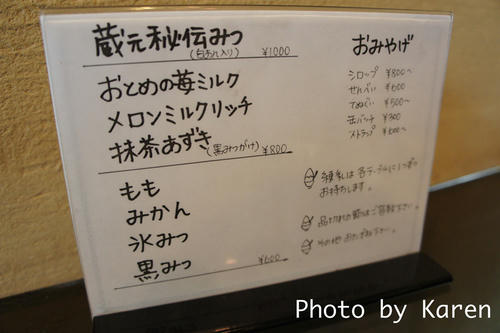 蔵元秘伝みつ
(白あん入り) ¥1000
おとめの苺ミルク
メロンミルクリッチ
抹茶あずき(黒みつがけ) ¥800
もも
みかん
氷みつ
黒みつ ¥600
おみやげ
シロップ ¥800~
せんべい ¥600
てぬぐい ¥500~
缶バッチ ¥300
ストラップ ¥600~
練乳は各テーブルに1つずつ
お持ちします。
品切れの際はご容赦下さい。
その他 おたずね下さい。
Photo by Karen